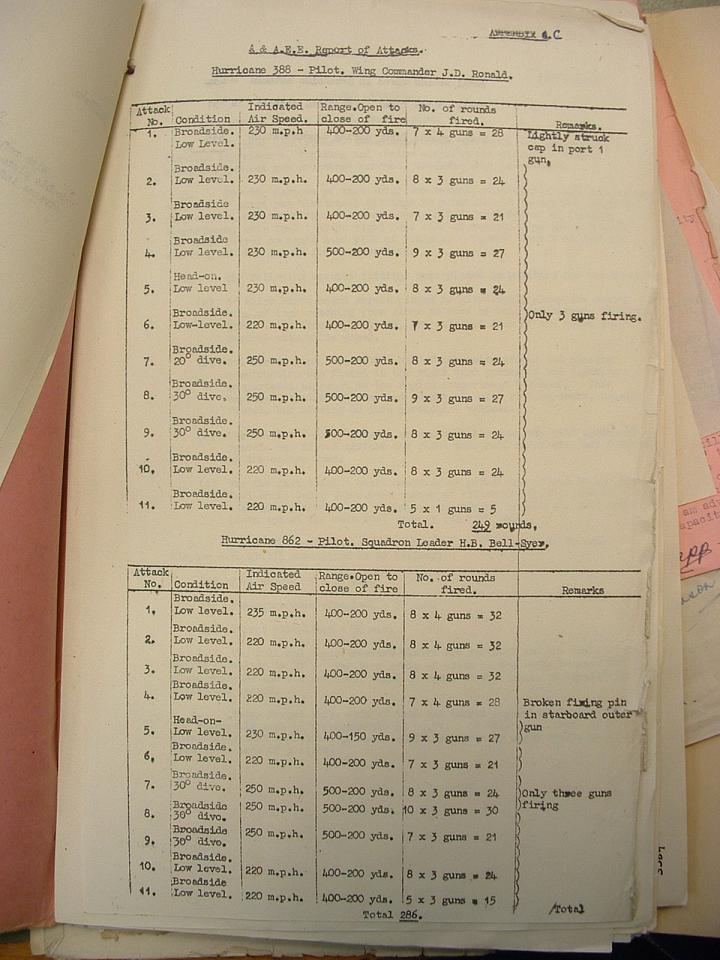 APPENDIX 4.C
A & A.E.E. Report of Attacks.
Hurricane 388 - Pilot. Wing Commander J.D. Ronald.
Attack No. Condition Indicated Air Speed. Range.Open to close of fire No. of rounds fired. Remarks.
1. Broadside. Low Level. 230 m.p.h 400-200 yds. 7 x 4 guns = 28 Lightly struck cap in port 1 gun.
2. Broadside. Low level. 230 m.p.h. 400-200 yds. 8 x 3 guns = 24
3. Broadside Low level. 230 m.p.h. 400-200 yds. 7 x 3 guns = 21
4. Broadside Low level. 230 m.p.h. 500-200 yds. 9 x 3 guns = 27
5. Head-on. Low level 230 m.p.h. 400-200 yds. 8 x 3 guns = 24
6. Broadside. Low-level. 220 m.p.h. 400-200 yds. 7 x 3 guns = 21 Only 3 guns firing.
7. Broadside. 20° dive. 250 m.p.h. 500-200 yds. 8 x 3 guns = 24
8. Broadside. 30° dive. 250 m.p.h. 500-200 yds. 9 x 3 guns = 27
9. Broadside. 30° dive. 250 m.p.h. 500-200 yds. 8 x 3 guns = 24
10. Broadside. Low level. 220 m.p.h. 400-200 yds. 8 x 3 guns = 24
11. Broadside. Low level. 220 m.p.h. 400-200 yds. 5 x 1 guns = 5
Total. 249 rounds.
Hurricane 862 - Pilot. Squadron Leader H.B. Bell-Syer.
Attack No. Condition Indicated Air Speed Range.Open to close of fire No. of rounds fired. Remarks
1. Broadside. Low level. 235 m.p.h. 400-200 yds. 8 x 4 guns = 32
2. Broadside. Low level. 220 m.p.h. 400-200 yds. 8 x 4 guns = 32
3. Broadside. Low level. 220 m.p.h. 400-200 yds. 8 x 4 guns = 32
4. Broadside. Low level. 220 m.p.h. 400-200 yds. 7 x 4 guns = 28 Broken fixing pin in starboard outer gun
5. Head-on- Low level. 230 m.p.h. 400-150 yds. 9 x 3 guns = 27
6. Broadside. Low level. 220 m.p.h. 400-200 yds. 7 x 3 guns = 21
7. Broadside. 30° dive. 250 m.p.h. 500-200 yds. 8 x 3 guns = 24 Only three guns firing
8. Broadside 30° dive. 250 m.p.h. 500-200 yds. 10 x 3 guns = 30
9. Broadside 30° dive. 250 m.p.h. 500-200 yds. 7 x 3 guns = 21
10. Broadside. Low level. 220 m.p.h. 400-200 yds. 8 x 3 guns = 24
11. Broadside Low level. 220 m.p.h. 400-200 yds. 5 x 3 guns = 15
Total 286.
/Total